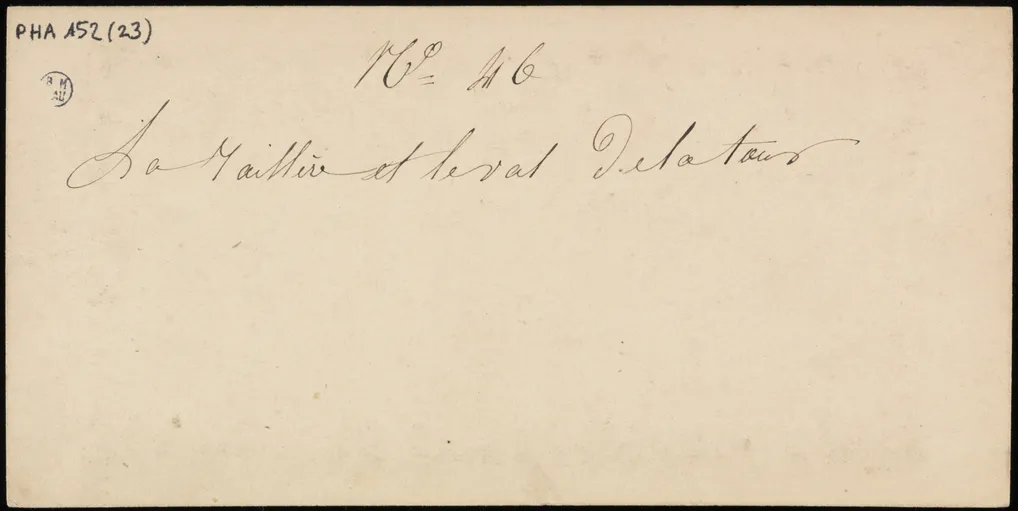 PHA 152 (23)
B M
AU
No 46
La Raillère et le val De la tour